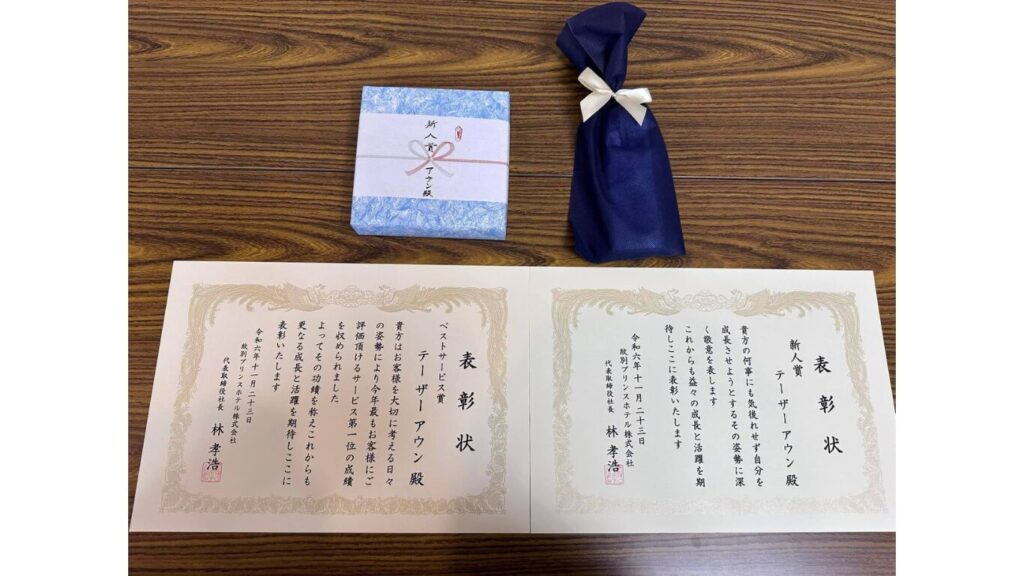 新人賞
アウン殿
表彰状
ベストサービス賞
テーザーアウン 殿
貴方はお客様を大切に考える日々
の姿勢により今年最もお客様にご
評価頂けるサービス第一位の成績
を収められました
よってその功績を称えこれからも
更なる成長と活躍を期待しここに
表彰いたします
令和六年十一月 二十三日
紋別プリンスホテル株式会社
代表取締役社長 林 孝浩
表彰状
新人賞
テーザーアウン 殿
貴方の何事にも気後れせず自分を
成長させようとするその姿勢に深
く敬意を表します
これからも益々の成長と活躍を期
待しここに表彰いたします
令和六年 十一月 二十三日
紋別プリンスホテル株式会社
代表取締役社長 林 孝浩